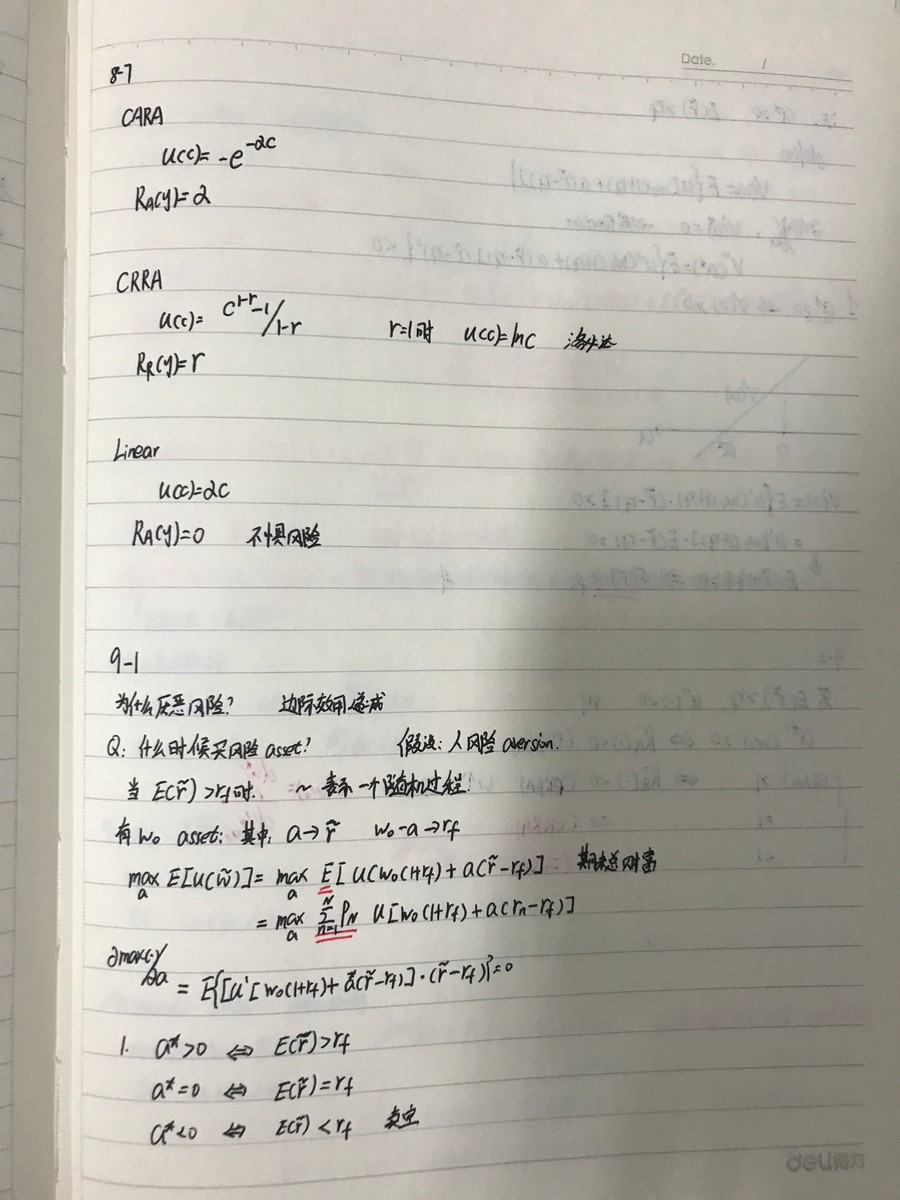 Date. /
8-7
CARA
u(c)= -e^{-αc}
R_A(y)=α
CRRA
u(c)= c^{1-r}-1/1-r r=1时 u(c)=lnc 洛必达
R_R(y)=r
Linear
u(c)=αc
R_A(y)=0 不惧风险
9-1
为什么厌恶风险? 边际效用递减
Q: 什么时候买风险asset? 假设:人风险aversion.
当 E(r̃)>r_f时. ~ 表示一个随机过程.
有w₀ asset: 其中, a→r̃ w₀-a→r_f
max_a E[u(w̃)]= max_a E[u(w₀(1+r_f)+a(r̃-r_f)] 期末总财富
= max_a Σ_{n=1}^{N} P_N u[w₀(1+r_f)+a(r_n-r_f)]
∂max(·)/∂a = E{[u'[w₀(1+r_f)+a(r̃-r_f)]·(r̃-r_f)}=0
1. a*>0 ⇔ E(r̃)>r_f
a*=0 ⇔ E(r̃)=r_f
a*<0 ⇔ E(r̃)<r_f 卖空
deli得力